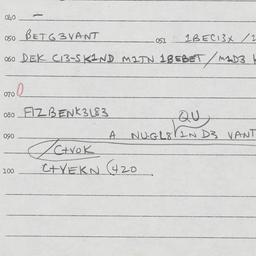 040 –
050 BETG3VANT 051 1BEC13X /2
060 DEK C13-SK1ND M2TN 1BEBET / M2D3
070
080 FIZBENK3L83
QU
090 A NUGL8 1N D3 VANT
C+VOK
100 C+VEKN (420